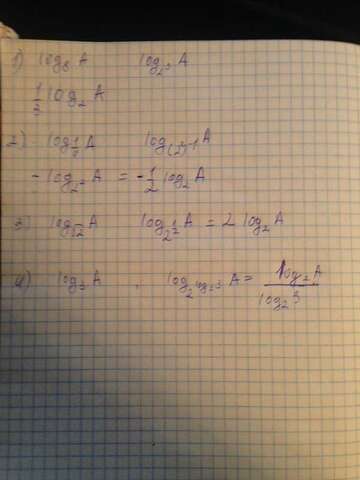 1) log₈ A log₂³ A
1/3 log₂ A
2) log_{1/4} A log_{(2²)⁻¹} A
- log_{2²} A = - 1/2 log₂ A
3) log_{√2} A log_{2^{1/2}} A = 2 log₂ A
4) log₃ A , log_{2^{log₂3}} A = log₂ A / log₂ 3